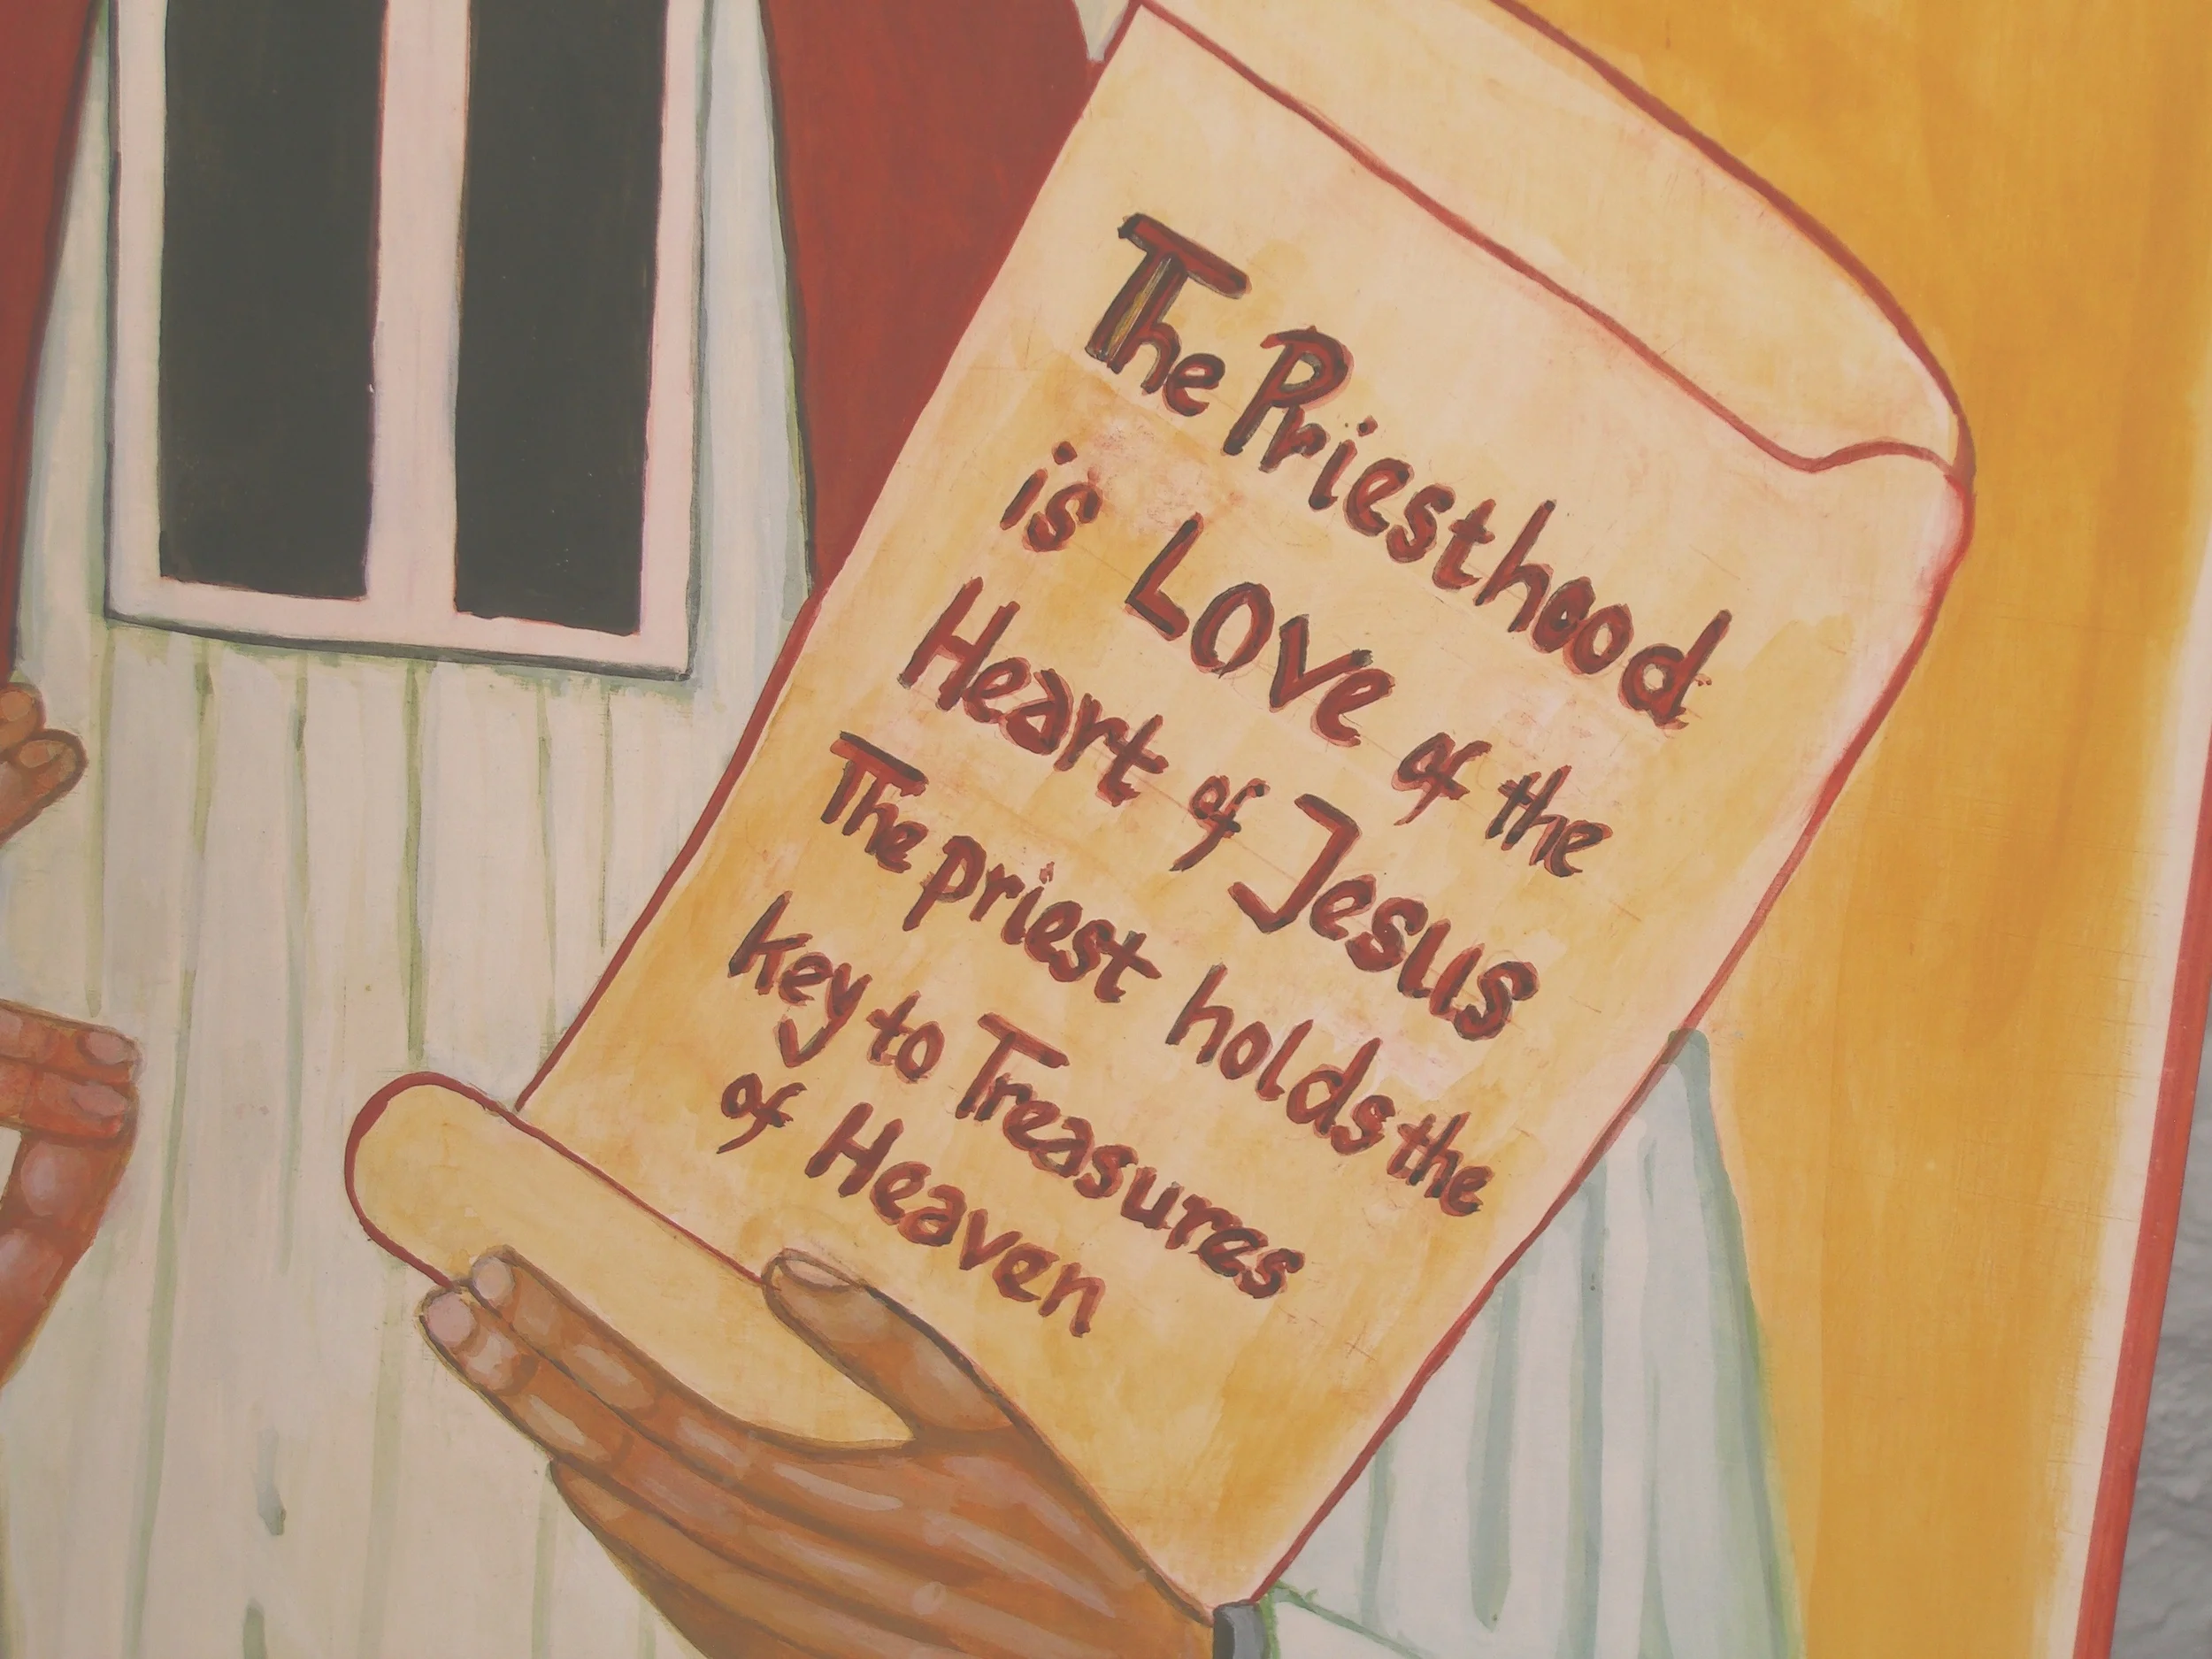 The Priesthood
is LOVe of the
Heart of Jesus
The priest holds the
key to Treasures
of Heaven